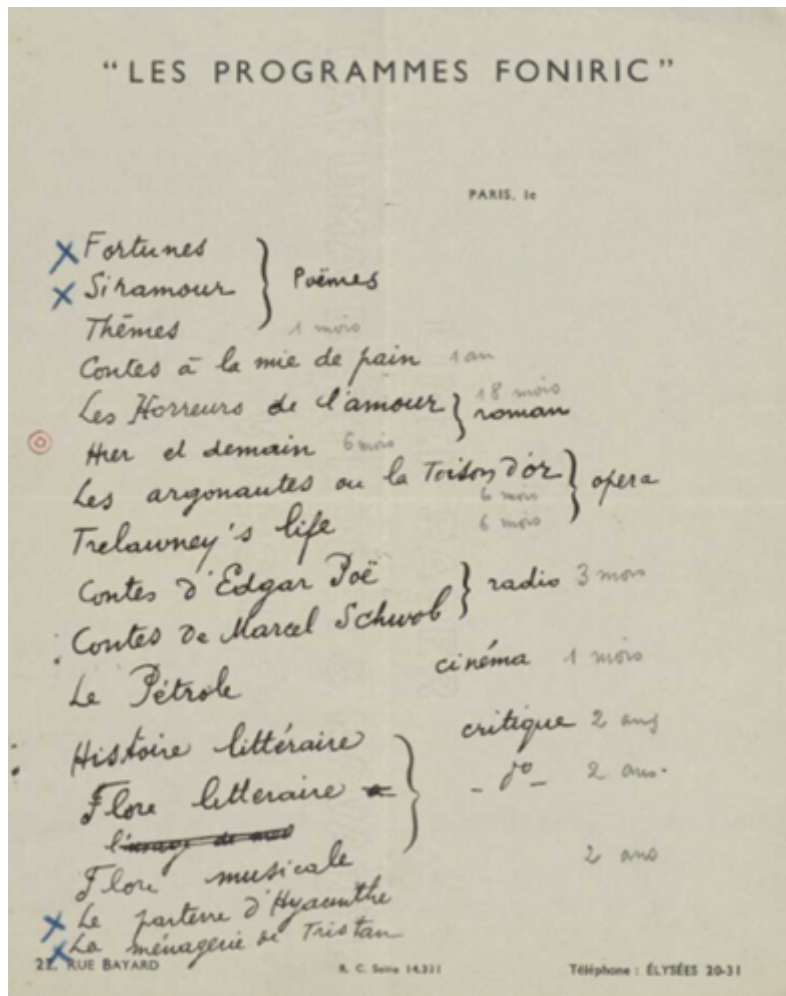 “LES PROGRAMMES FONIRIC”
PARIS, le
Fortunes
Siramour } Poëmes
Thèmes 1 mois
Contes à la mie de pain 1 an
Les Horreurs de l'amour } roman 18 mois
Hier et demain 6 mois
Les argonautes ou la Toison d'or } opera 6 mois
Trelawney's life 6 mois
Contes d'Edgar Poë } radio 3 mois
Contes de Marcel Schwob
Le Pétrole cinéma 1 mois
Histoire littéraire critique 2 ans
Flore litteraire - do - 2 ans.
Flore musicale 2 ans
Le parterre d'Hyacinthe
La ménagerie de Tristan
22, RUE BAYARD R. C. Seine 14.331 Téléphone : ÉLYSÉES 20-31